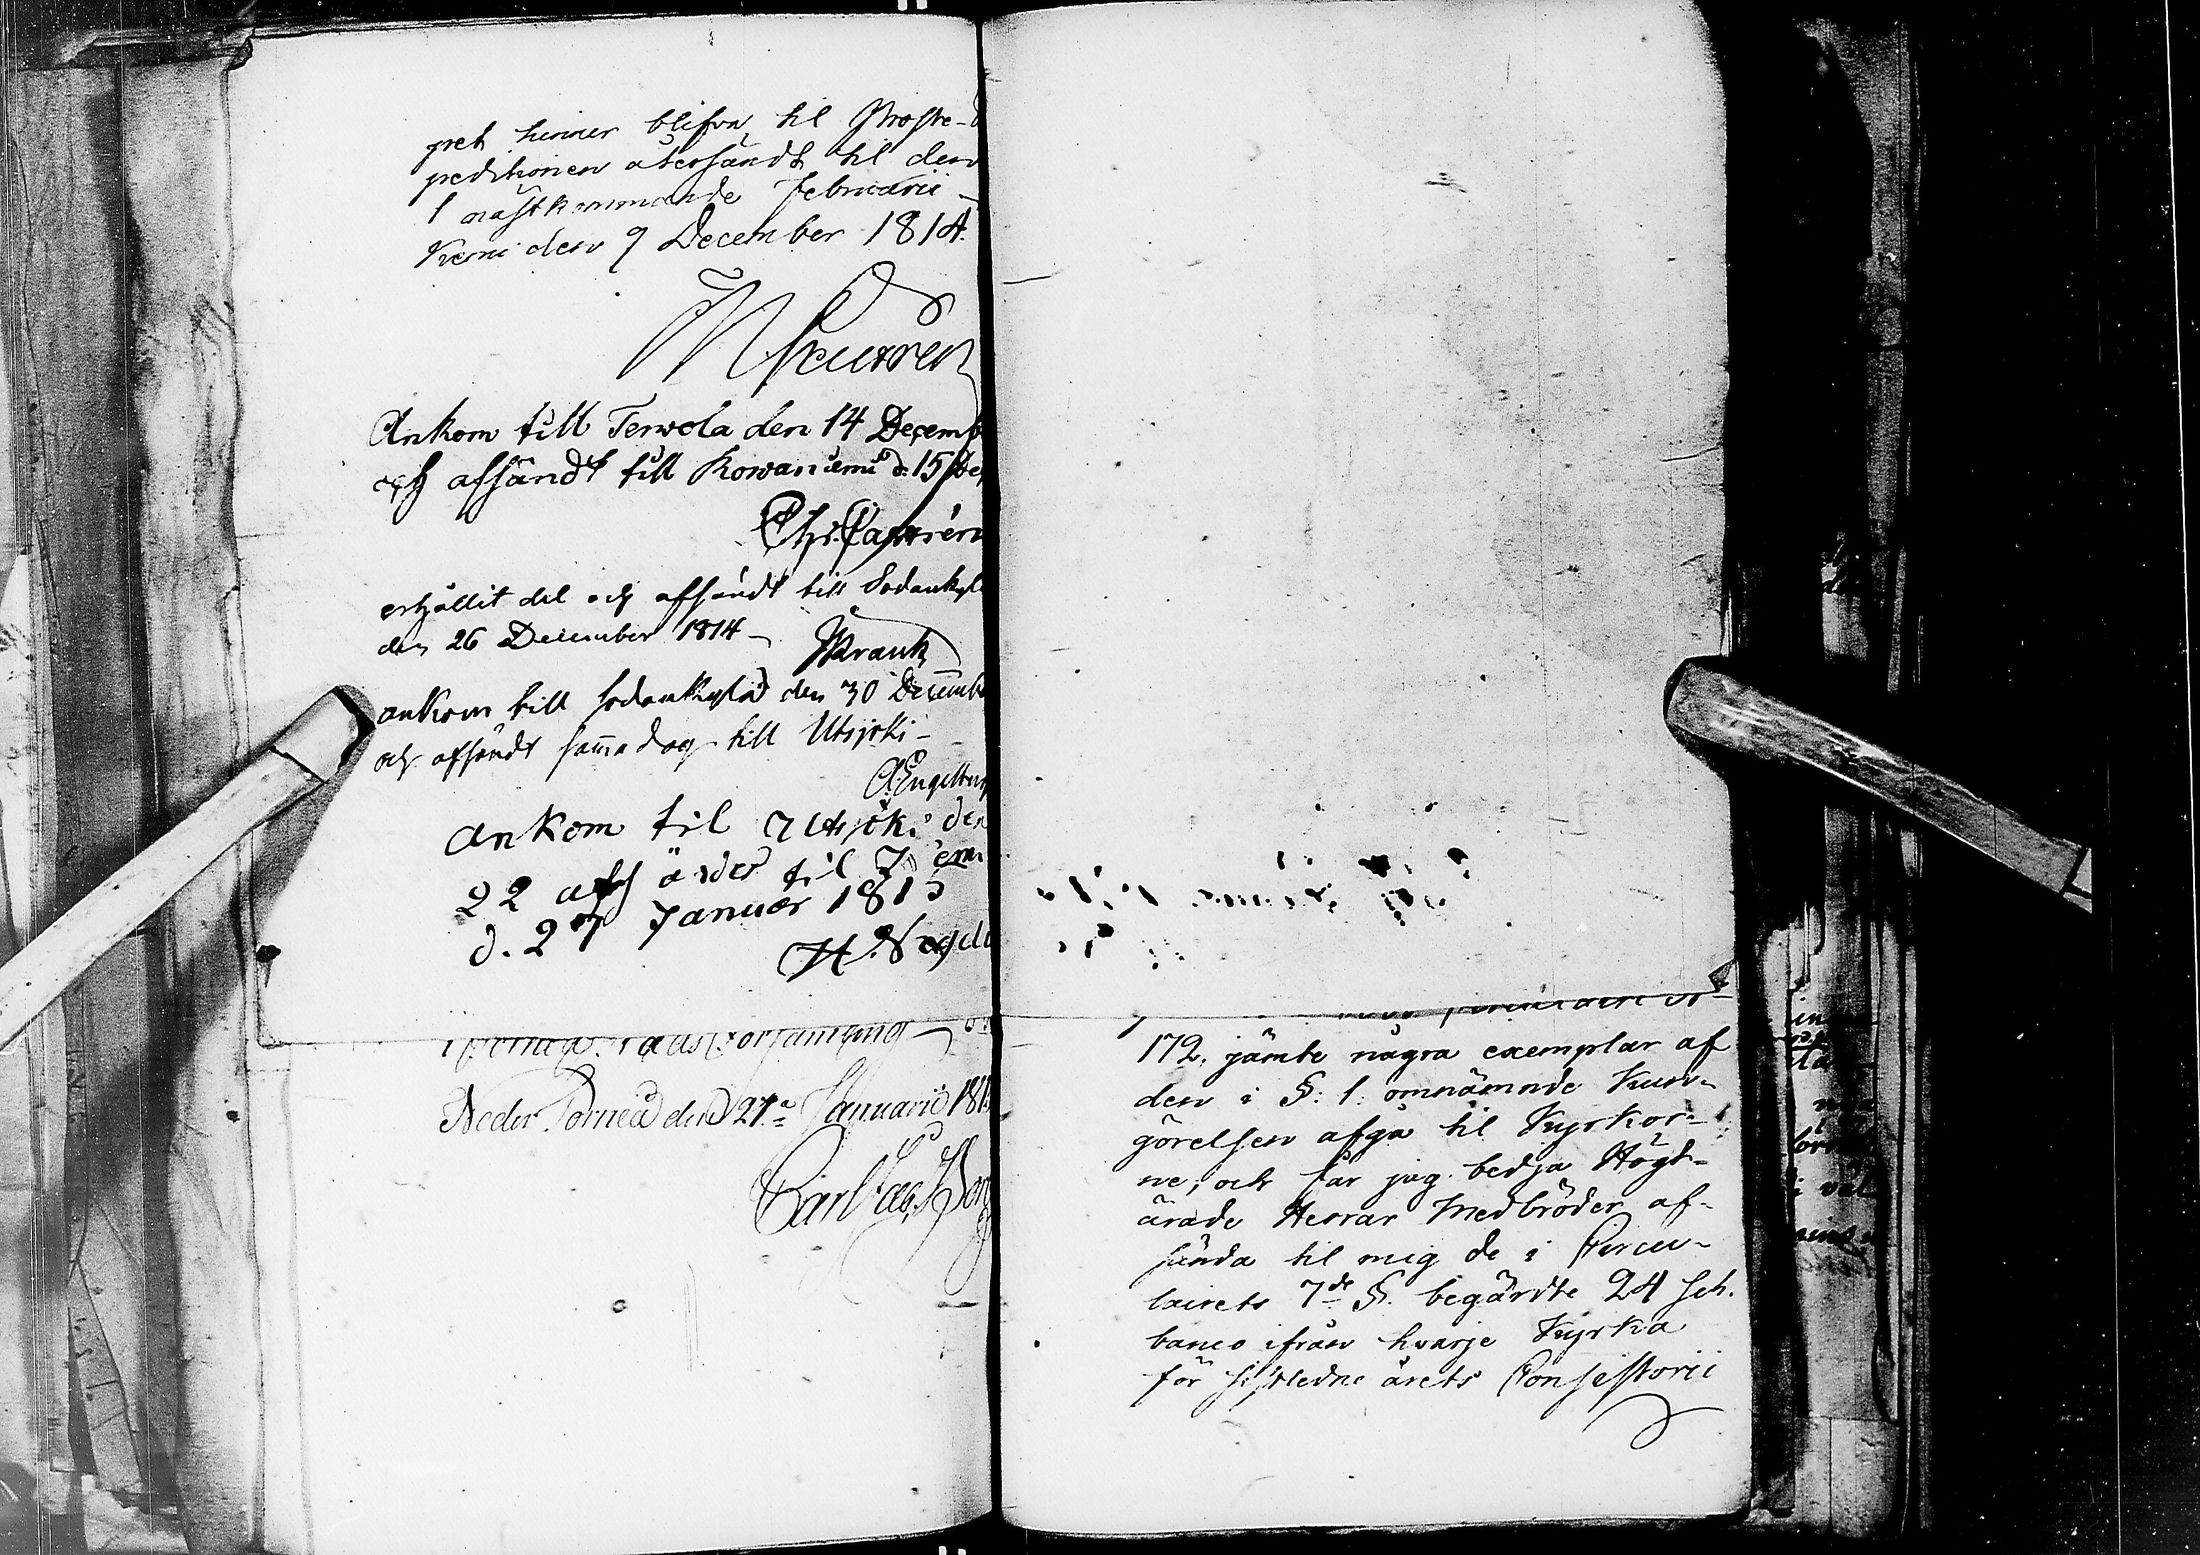 pret hinner blifva til Prosteex
peditionen återsändt til den
1 nästkommande Februarii
Kemi den 9 December 1814.
Ankom till Terwola den 14 Decemb
och afsändt till Rowaniemi d. 15 De
Chr. Castrén
erhållit del och afsändt till Sodankyl
den 26 December 1814
Wrank
ankom till Sodankylä den 30 Decemb
och afsändt samma dag till Utsjoki
A. Engelb
Ankom til Utsjoki den
22 afsändes til
d. 27 Januar 1815
Neder Torneå den 27 Januarii 181
Carl
172. jämte några exemplar af
den i §: 1: omnämnde Kun-
görelsen afgå til Kyrkor-
ne; och får jag bedja Högt-
ärade Herrar Medbröder af-
sända til mig de i Circu-
lairets 7de §. begärdte 24 sch.
banco ifrån hvarje Kyrka
för sistledne årets Consistorii